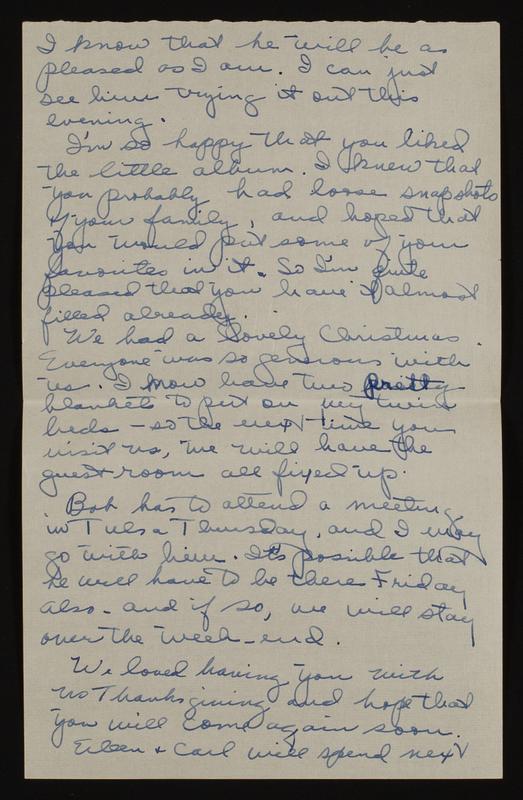 I know that he will be as
pleased as I am. I can just
see him trying it out this
evening.
I'm so happy that you liked
the little album. I knew that
you probably had loose snapshots
of your family, and hoped that
you would put some of your
favorites in it. So I'm quite
pleased that you have it almost
filled already.
We had a lovely Christmas.
Everyone was so generous with
us. I now have two pretty
blankets to put on my twin
beds - so the next time you
visit us, we will have the
guest room all fixed up.
Bob has to attend a meeting
in Tulsa Thursday, and I may
go with him. It's possible that
he will have to be there Friday
also - and if so, we will stay
over the week-end.
We loved having you with
us Thanksgiving and hope that
you will come again soon.
Eileen + Carl will spend next